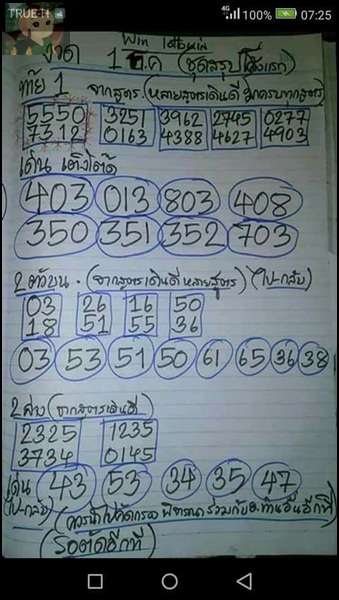 TRUE-H 4G 100% 07:25
Win
งวด 1 ต.ค (ชุดสรุป
ท้าย 1 จากสูตร (หลายสูตรเดินดี)
5550 3251 3962 2745 0277
7312 0163 4388 4627 4903
เด่น เต็งโต๊ด
403 013 803 408
350 351 352 703
2 ตัวบน. (จากสูตรเดินดี หลายสูตร) (ไป-กลับ)
03 26 16 50
18 51 55 36
03 53 51 50 61 65 36 38
2 ล่าง (จากสูตรเดินดี)
2325 1235
3734 0145
เด่น 43 53 34 35 47
(ไป-กลับ) (ควรนำไปคัดกรอง พิจารณาร่วมกับ
(รอตัดอีกที)